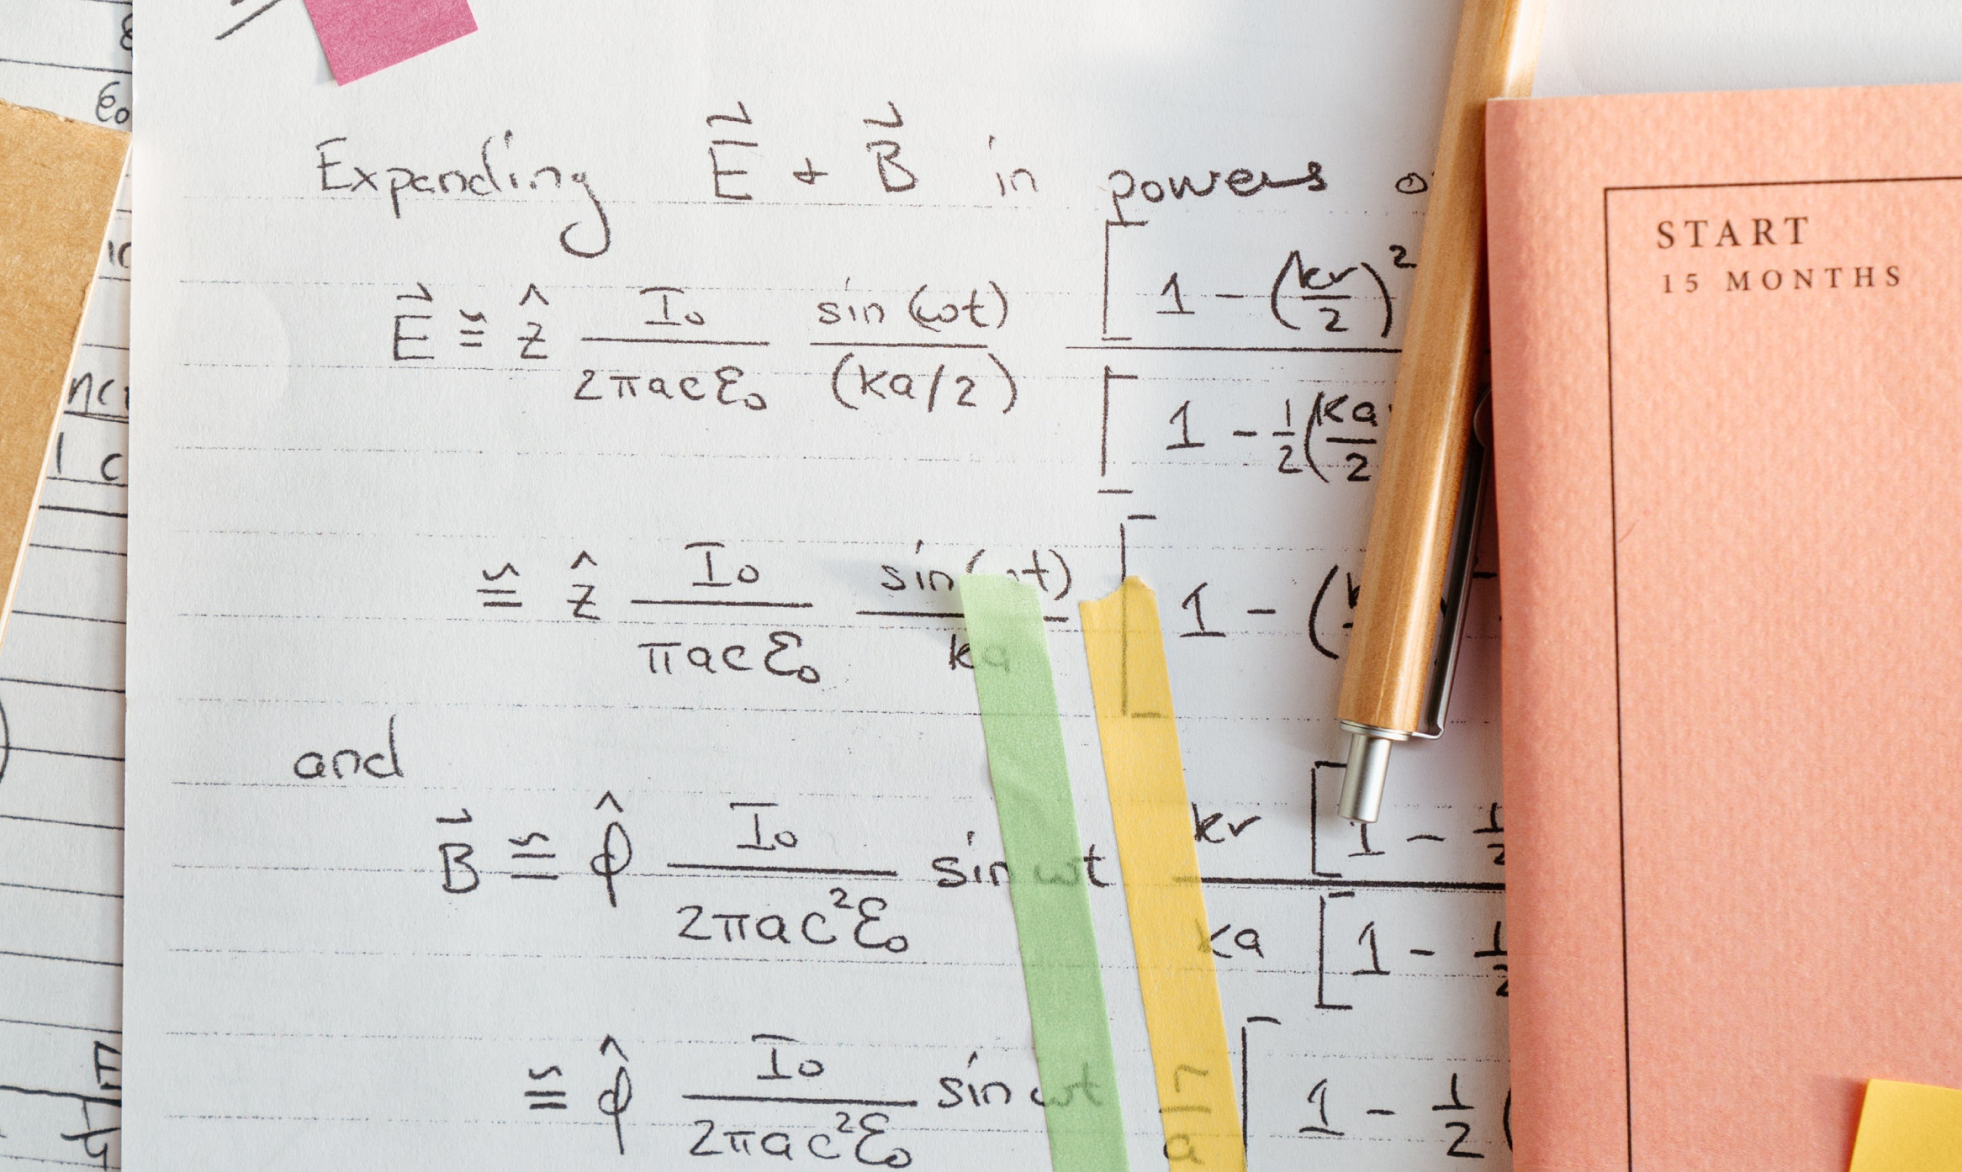 Expanding E⃗ + B⃗ in powers
E⃗ ≅ ẑ I₀/(2πacε₀) sin(ωt)/(ka/2) [1 - (kr/2)²
[1 - ½(ka/2
≅ ẑ I₀/(πacε₀) sin(ωt)/ka [1 - (
and
B⃗ ≅ φ̂ I₀/(2πac²ε₀) sin ωt kr [1 - ½
ka [1 - ½
≅ φ̂ I₀/(2πac²ε₀) sin ωt r/a [1 - ½(
START
15 MONTHS
ε₀